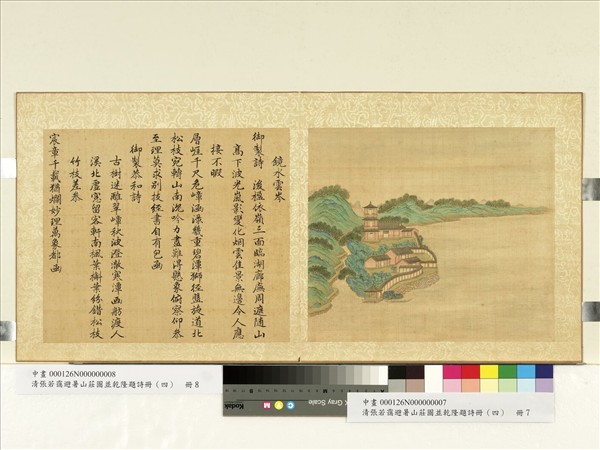 鏡水雲岑
御製詩 後楹依嶺三面臨湖廊廡周遮隨山
高下波光嵐影變化烟雲佳景無邊令人應
接不暇
層崖千尺危嶂涵淥幾重碧潭 徑盤旋道北
松枝宛轉山南沈吟力盡難得懸象俯察仰參
至理莫求別技經書自有包函
御製恭和詩
古樹迷離翠嶂秋波澄澈寒潭画舫渡人
溪北虛窗留客軒南楓葉槲葉紛錯松枝
竹枝差參
宸章千載猶爛妙理萬象都函
中畫 000126N000000008
清張若靄避暑山莊圖並乾隆題詩冊（四） 冊 8
Kodak
Gray Scale
C M
中畫 000126N000000007
清張若靄避暑山莊圖並乾隆題詩冊（四） 冊 7